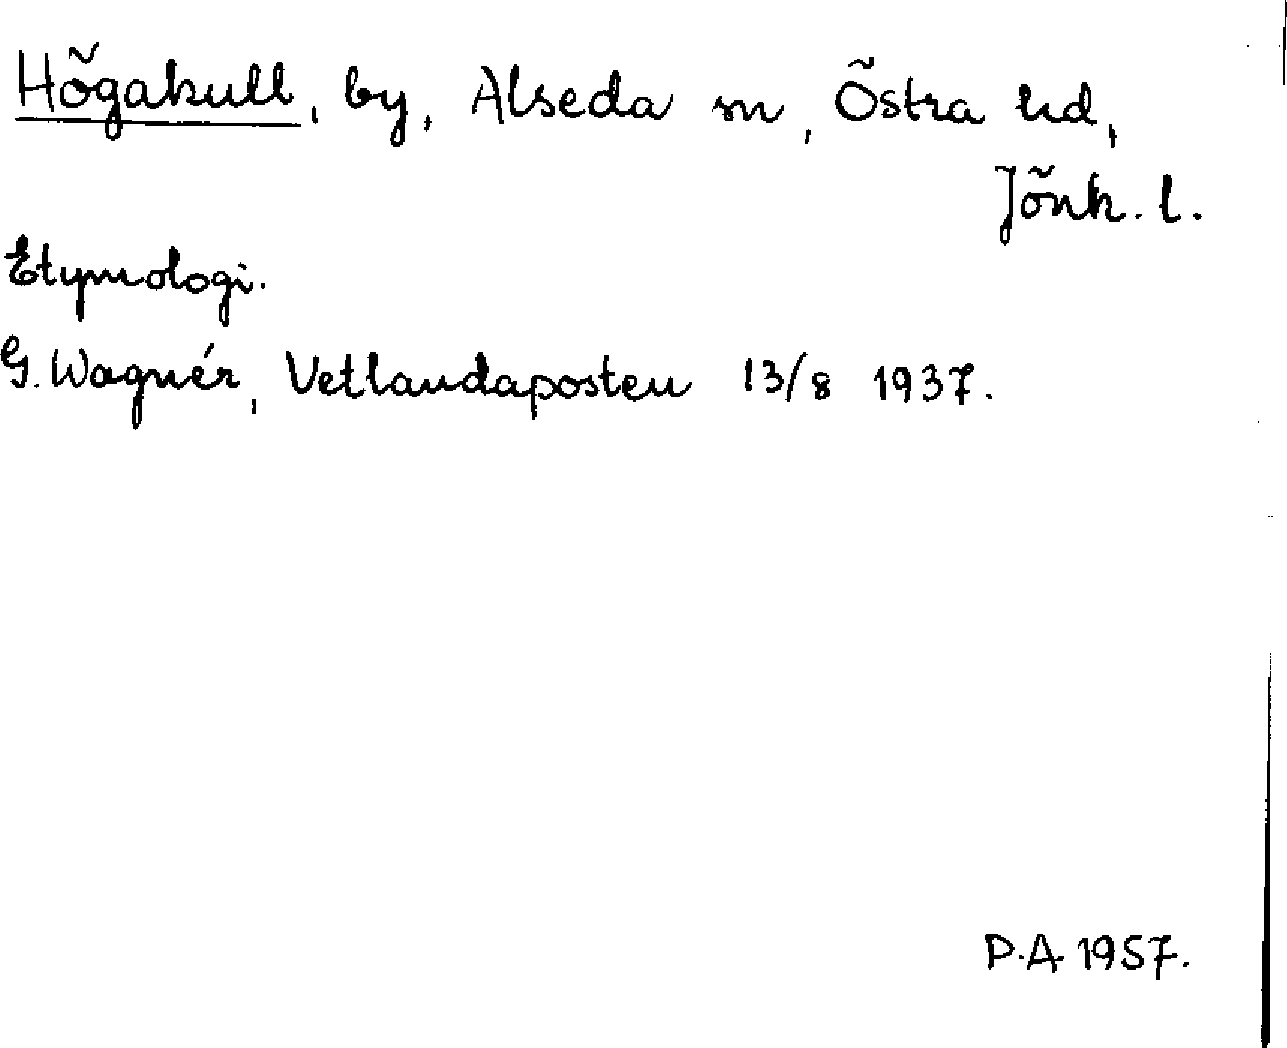 Högakull, by, Alseda sn, Östra hd,
Jönk. l.
Etymologi.
G. Wagnér, Vetlandaposten 13/8 1937.
P.A. 1957.